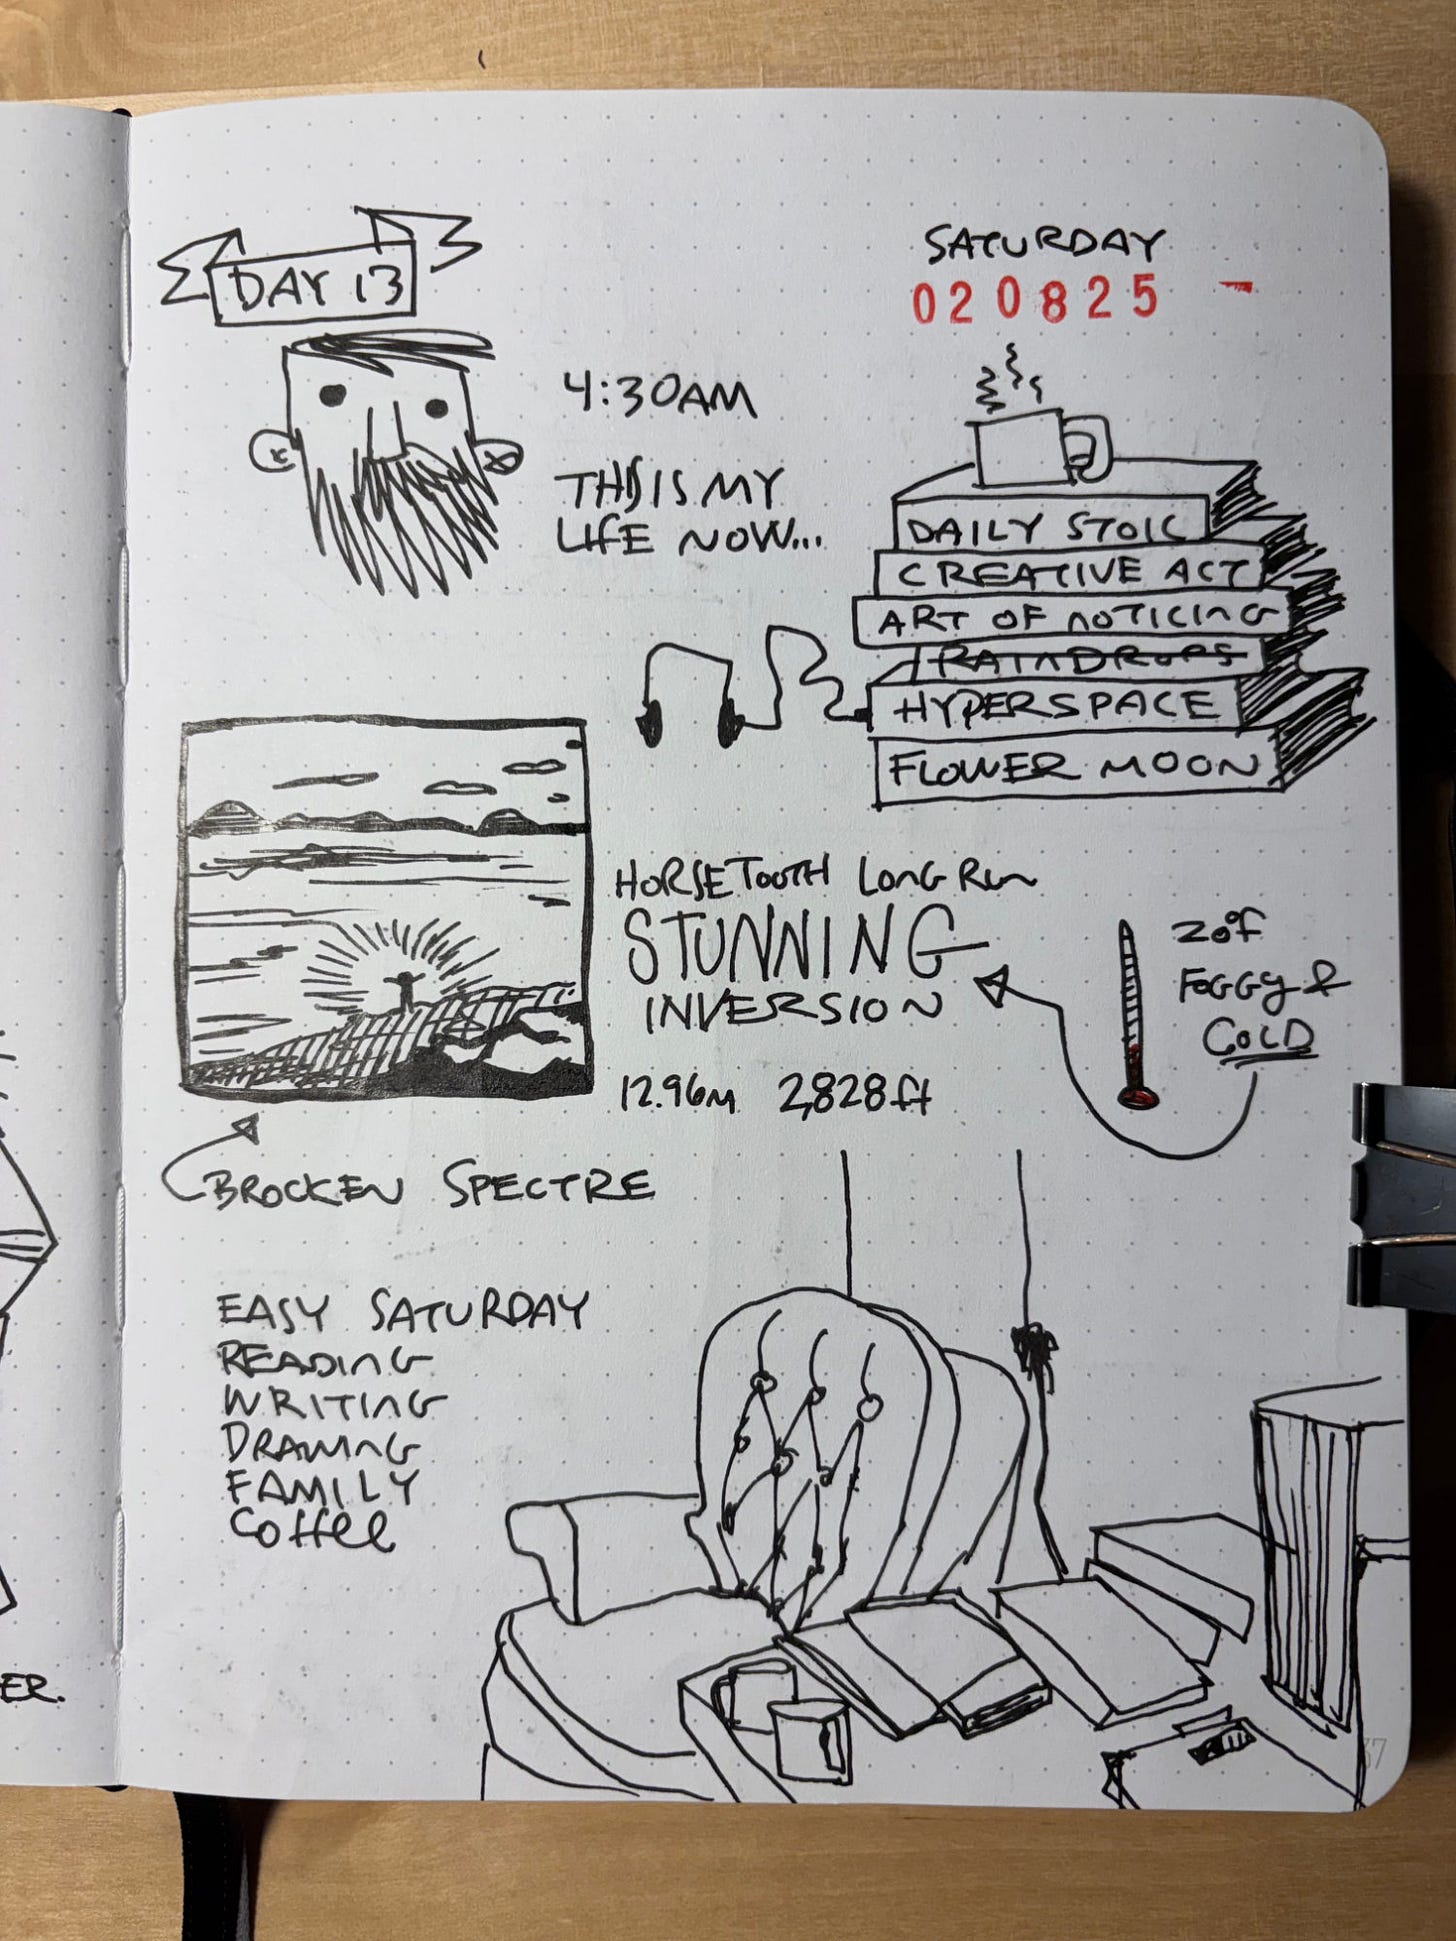 DAY 13
SATURDAY
020825
4:30AM
THIS IS MY
LIFE NOW...
DAILY STOIC
CREATIVE ACT
ART OF NOTICING
RAINDROPS
HYPERSPACE
FLOWER MOON
HORSETOOTH LONG RUN
STUNNING
INVERSION
12.96M 2,828ft
20°F
FOGGY &
COLD
BROCKEN SPECTRE
EASY SATURDAY
READING
WRITING
DRAWING
FAMILY
COffEE
ER.
37